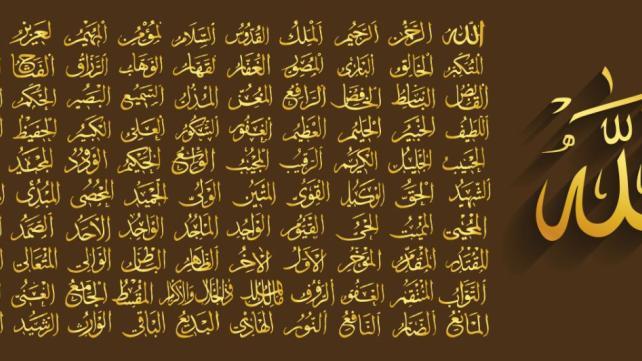 الله الرحمن الرحيم الملك القدوس السلام المؤمن المهيمن العزيز
المتكبر الخالق البارئ المصور الغفار القهار الوهاب الرزاق الفتاح
القابض الباسط الخافض الرافع المعز المذل السميع البصير الحكم
اللطيف الخبير الحليم العظيم الغفور الشكور العلي الكبير الحفيظ
الحسيب الجليل الكريم الرقيب المجيب الواسع الحكيم الودود المجيد
الشهيد الحق الوكيل القوي المتين الولي الحميد المحصي المبدئ
المحيي المميت الحي القيوم الواجد الماجد الواحد الأحد الصمد
المقتدر المقدم المؤخر الأول الآخر الظاهر الباطن الوالي المتعالي
التواب المنتقم العفو الرؤوف مالك الملك ذو الجلال والإكرام المقسط الجامع الغني
المانع الضار النافع النور الهادي البديع الباقي الوارث الرشيد